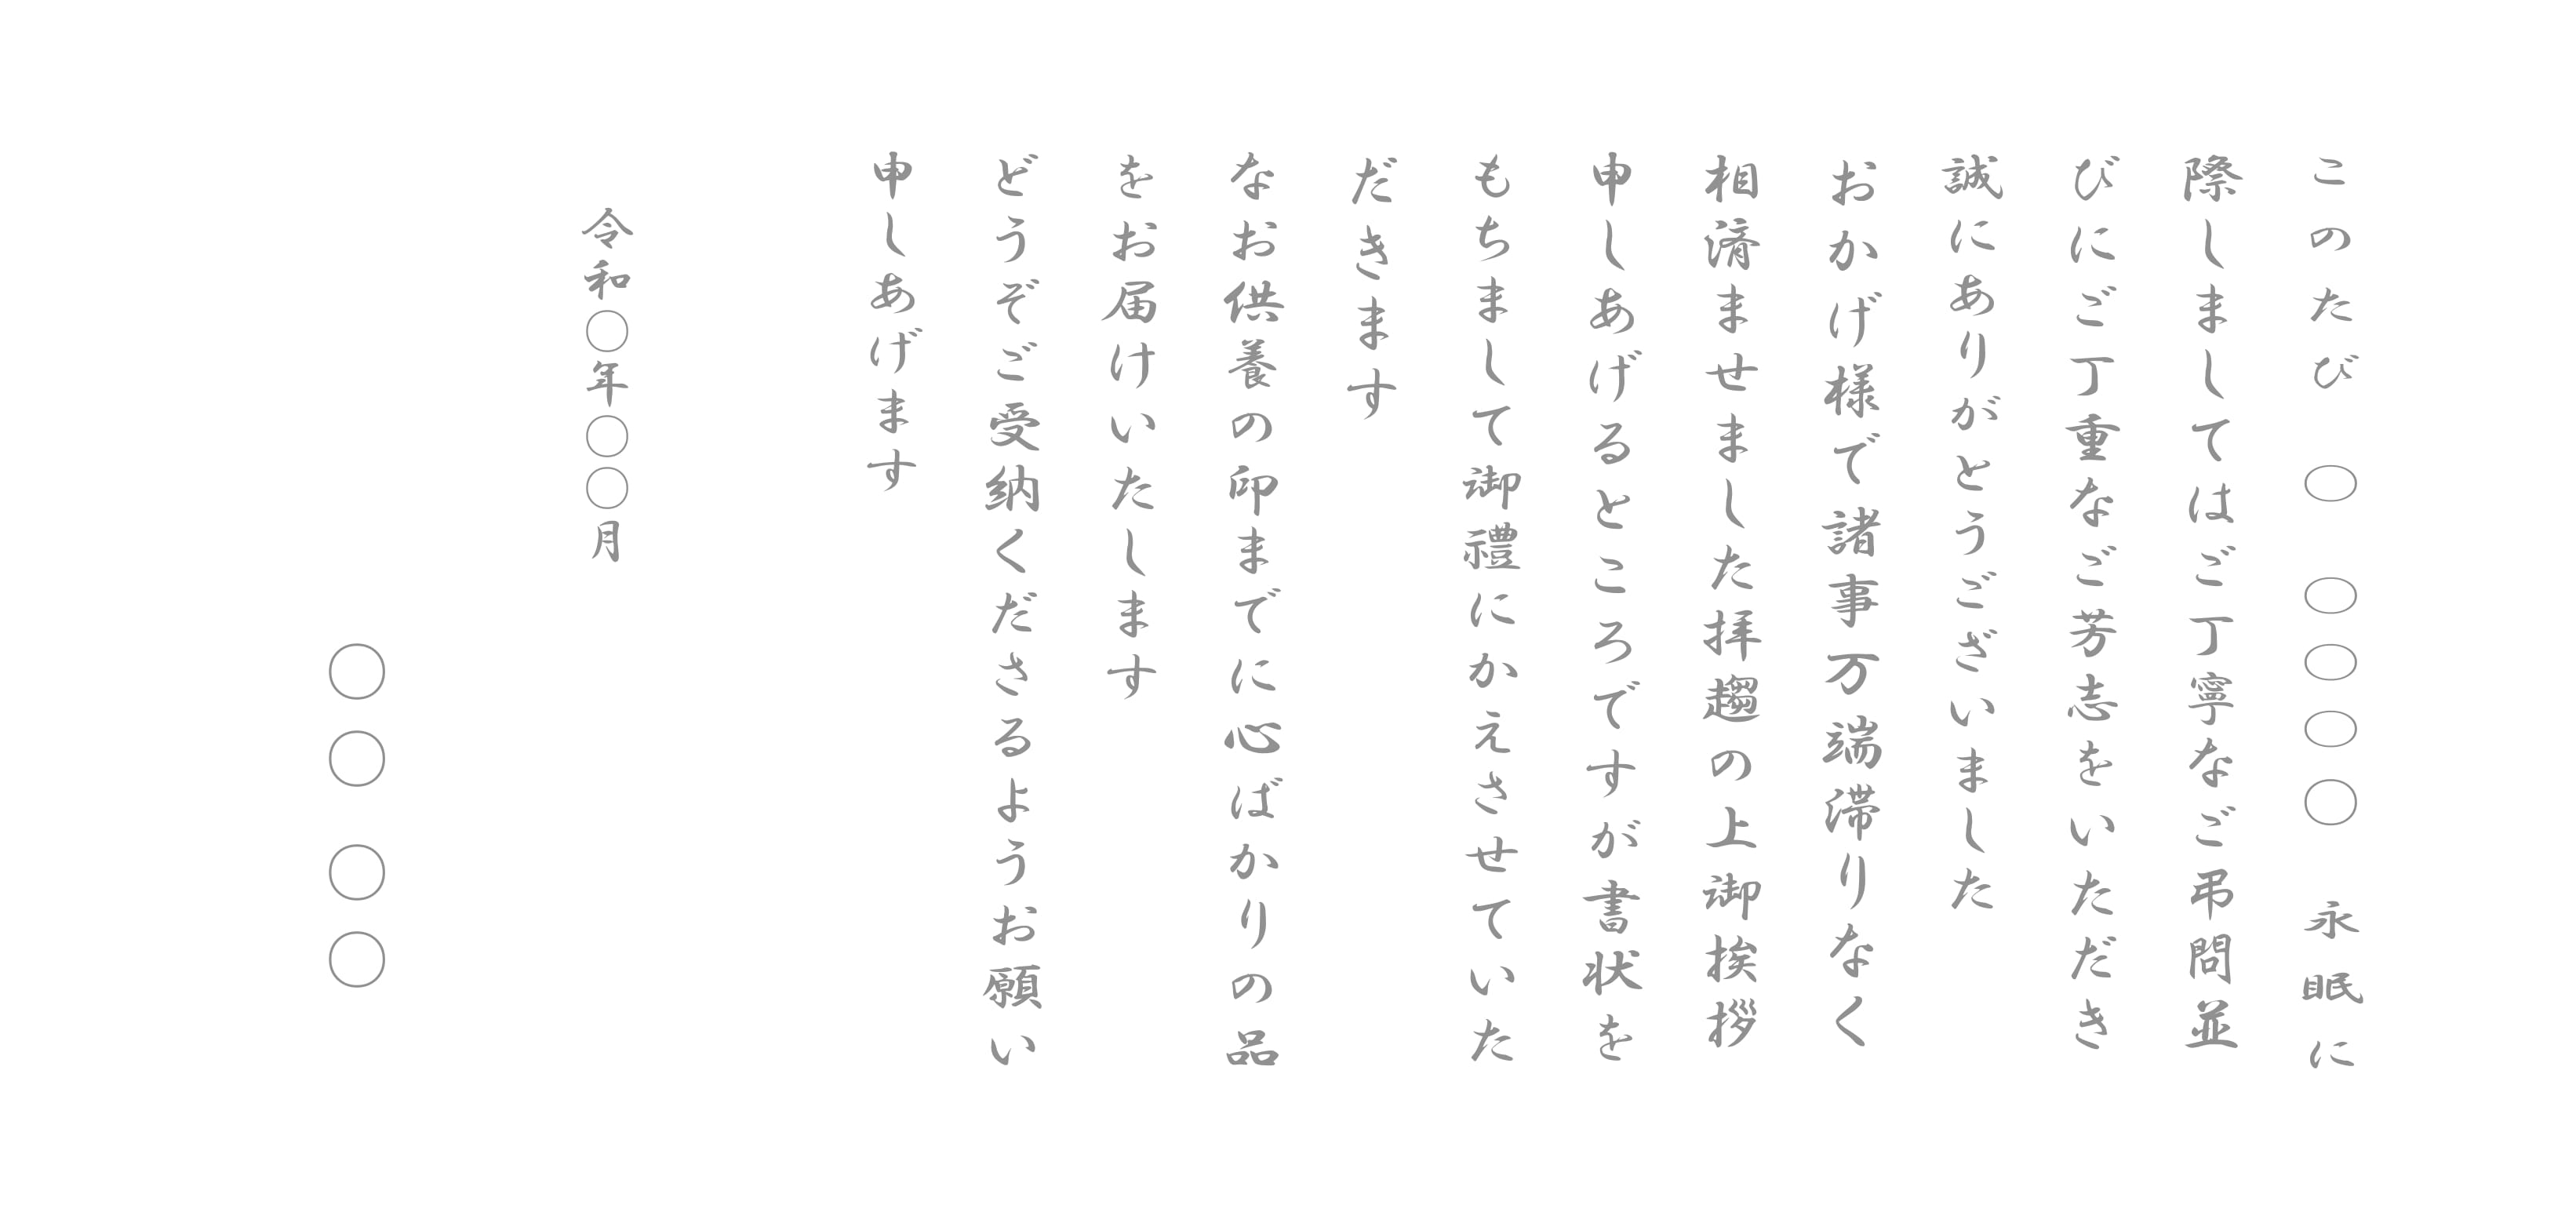 このたび ○ ○○○○ 永眠に
際しましてはご丁寧なご弔問並
びにご丁重なご芳志をいただき
誠にありがとうございました
おかげ様で諸事万端滞りなく
相済ませました拝趨の上御挨拶
申しあげるところですが書状を
もちまして御禮にかえさせていた
だきます
なお供養の印までに心ばかりの品
をお届けいたします
どうぞご受納くださるようお願い
申しあげます
令和○年○○月
○○ ○○